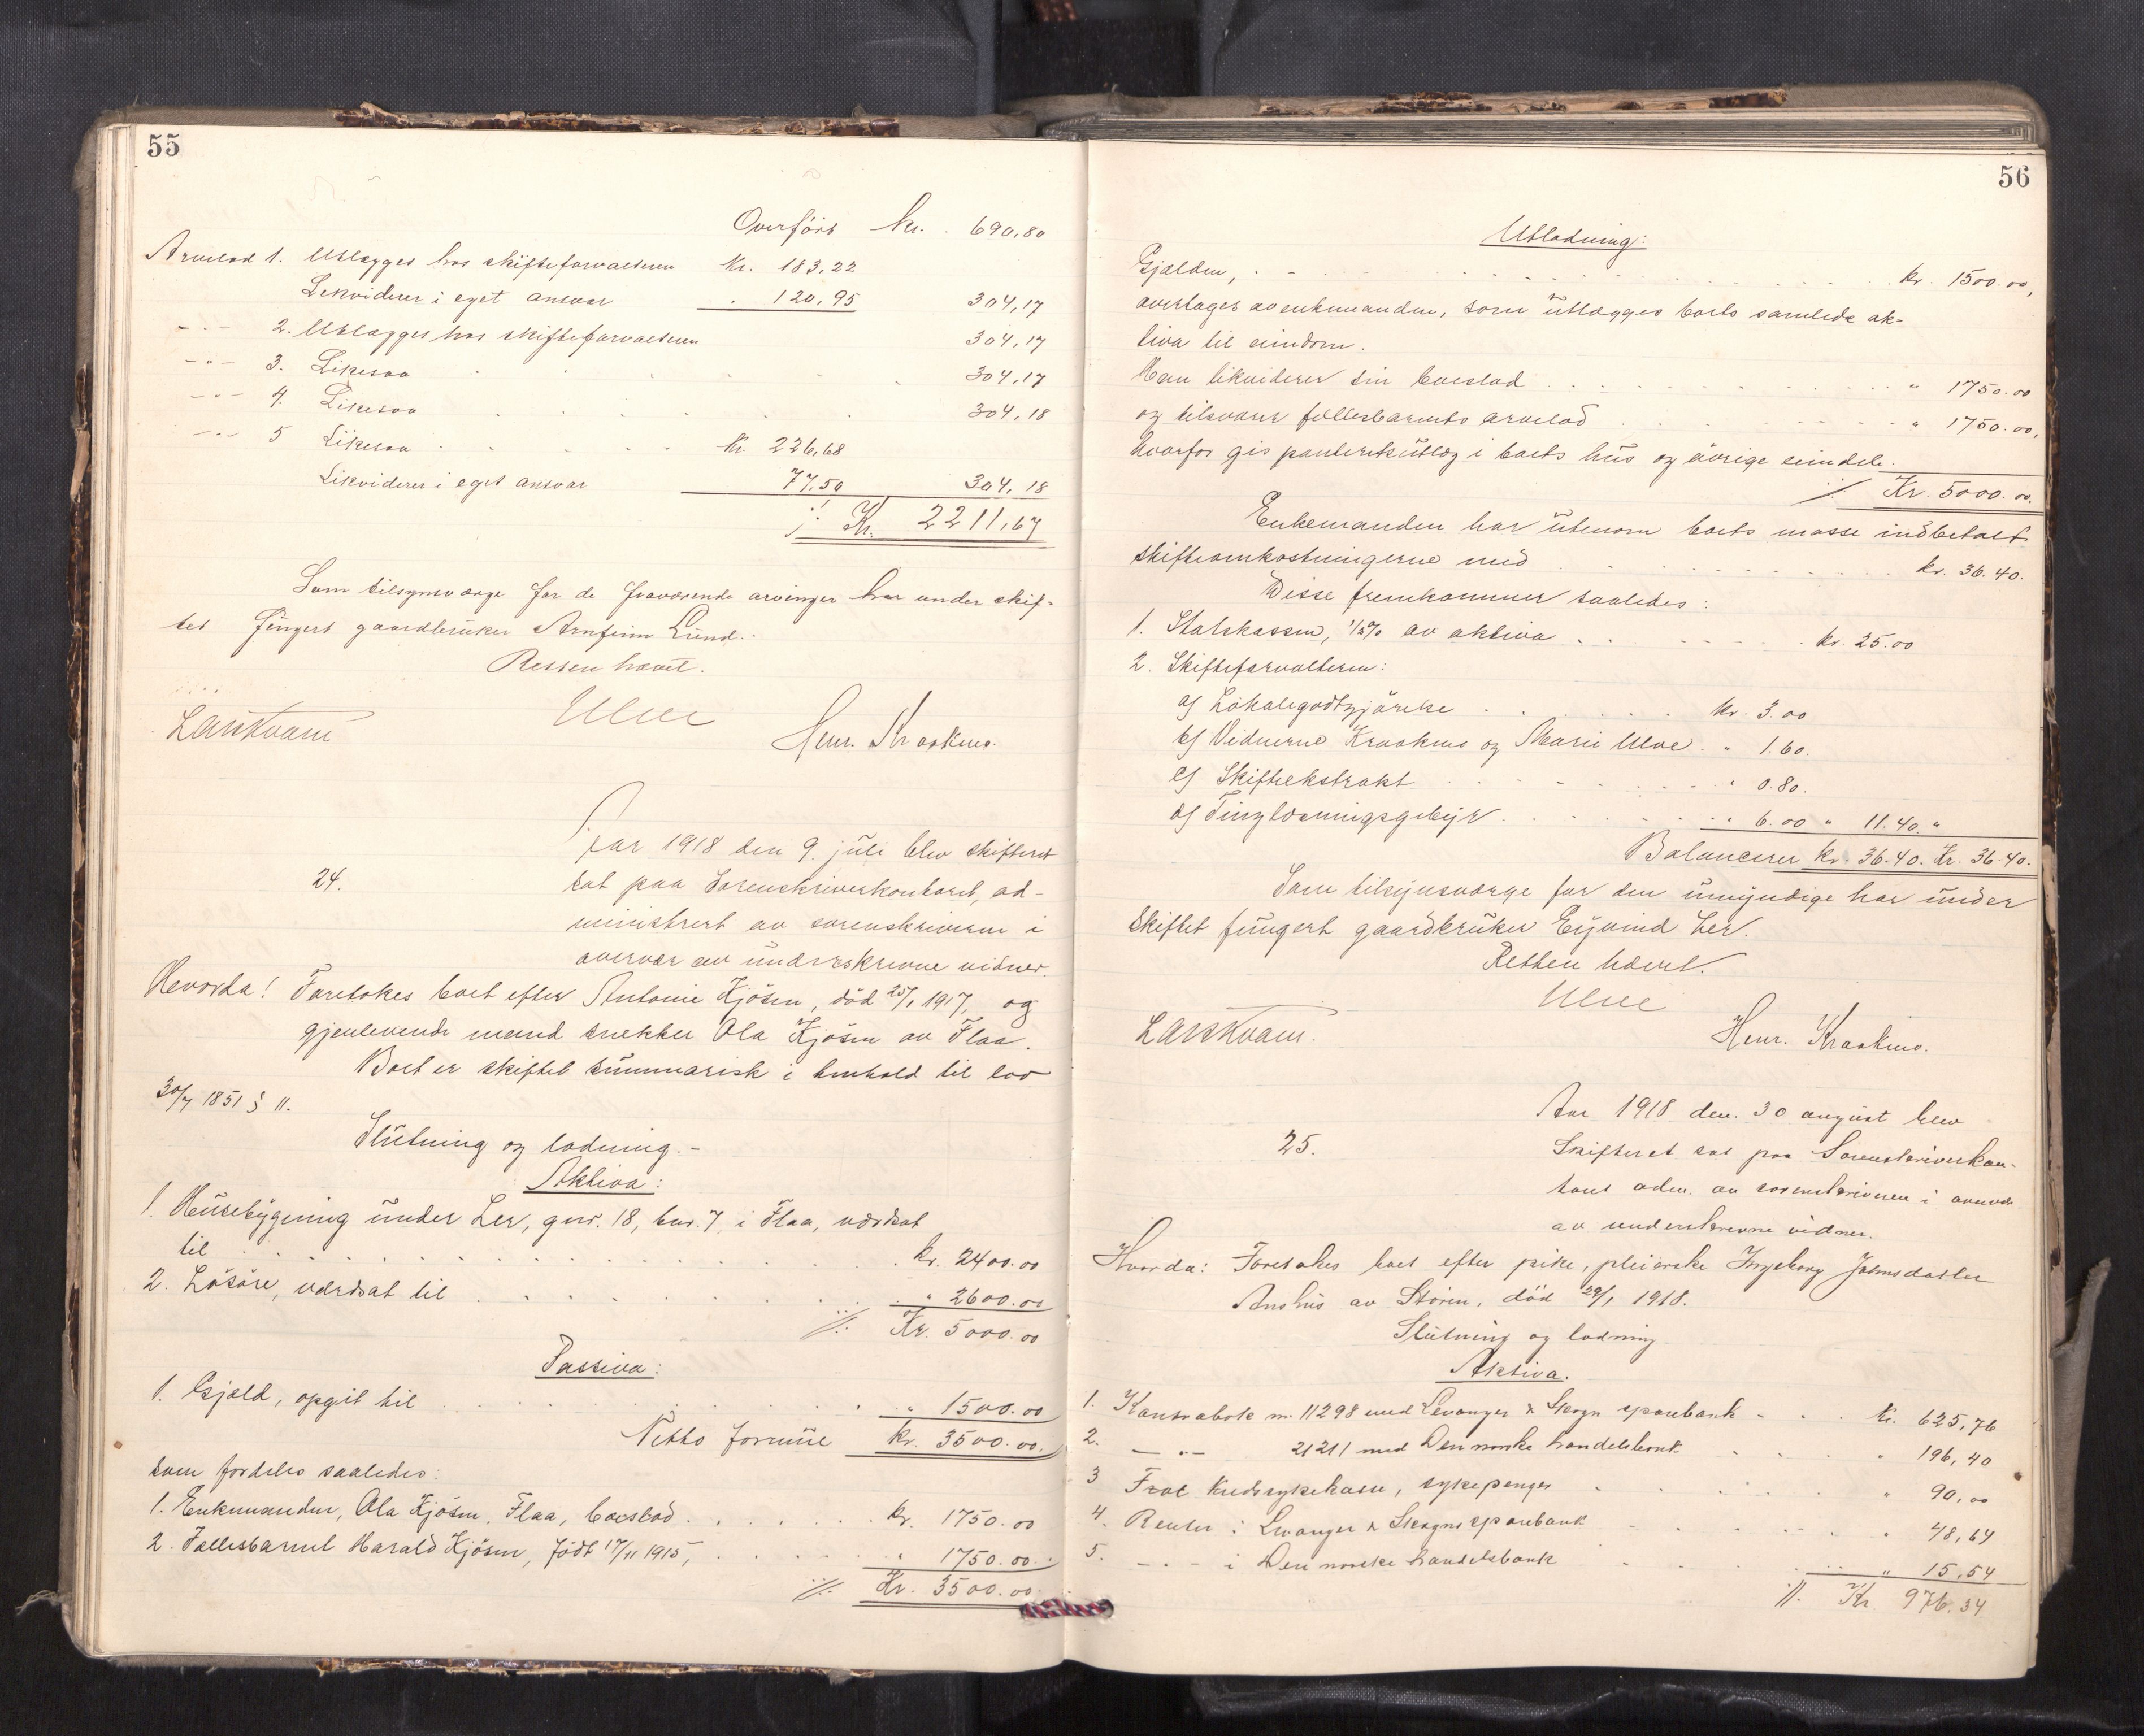 55
Overført kr. 690,80
Arvelod 1. Utlægges hos skifteforvalteren Kr. 183,22
Likviderer i eget ansvar " 120,95 304,17
-"- 2. Utlægges hos skifteforvalteren 304,17
-"- 3. Likesaa 304,17
-"- 4. Likesaa 304,18
-"- 5 Likesaa Kr. 226,68
Likviderer i eget ansvar 77,50 304,18
Kr. 2211,67
Som tilsynsværge for de fraværende arvinger har under skif-
tet fungert gaardbruker Arnfinn Lund.
Retten hævet.
Ulve
Lars Kvam Henr. Kraakmo.
24.
Aar 1918 den 9. juli blev skifteret
sat paa Sorenskriverkontoret, ad-
ministrert av sorenskriveren i
overvær av underskrevne vidner.
Hvorda! Foretokes boet efter Antonie Kjøsen, død 25/1 1917, og
gjenlevende mand snekker Ola Kjøsen av Flaa.
Boet er skiftet summarisk i henhold til lov
30/7 1851 § 11.
Slutning og lodning.-
Aktiva:
1. Husebygning under Ler, gnr. 18, bnr. 7 i Flaa, værdsat
til kr. 2400.00
2. Løsøre, værdsat til " 2600.00
Kr. 5000.00
Passiva:
1. Gjæld, opgit til " 1500.00
Netto formue kr. 3500.00.
som fordeles saaledes:
1. Enkemanden, Ola Kjøsen, Flaa, boeslod kr. 1750.00
2. Fællesbarnet Harald Kjøsen, født 17/11 1915, " 1750.00.
Kr. 3500.00.
56
Utlodning:
Gjælden, kr. 1500.00,
overtages av enkemanden, som utlægges boets samlede ak-
tiva til eiendom.
Han likviderer sin boeslod " 1750.00
og tilsvarer fællesbarnets arvelod " 1750.00,
hvorfor gis panterets utlæg i boets hus og øvrige eiendele.
Kr. 5000.00.
Enkemanden har utenom boets masse indbetalt
skifteomkostningerne med kr. 36.40.
Disse fremkommer saaledes:
1. Statskassen, 1/2% av aktiva kr. 25.00
2. Skifteforvalteren:
a) Lokalegodtgjørelse kr. 3.00
b) Vidnerne Kraakmo og Marie Ulve " 1.60.
c) Skifteekstrakt " 0.80.
d) Tinglæsningsgebyr " 6.00 " 11.40 "
Balancerer kr. 36.40. Kr. 36.40.
Som tilsynsværge for den umyndige har under
skiftet fungert gaardbruker Eyvind Ler.
Retten hævet.
Ulve
Lars Kvam. Henr. Kraakmo.
25.
Aar 1918 den 30 august blev
Skifteret sat paa Sorenskriverkon-
toret adm. av sorenskriveren i overvær
av underskrevne vidner.
Hvorda: Foretokes boet efter pike, pleierske Ingeborg Johnsdatter
Anshus av Støren, død 29/1 1918.
Slutning og lodning
Aktiva.
1. Kontrabok nr. 11298 med Levanger & Skogn sparebank Kr. 625,76
2. -"- 21211 med Den norske handelsbank " 196,40
3 Fra Kredssykekasse, sykepenger " 90,00
4. Renter i Levanger & Skogns sparebank " 48,64
5. -"- i Den norske handelsbank " 15,54
Kr. 976,34